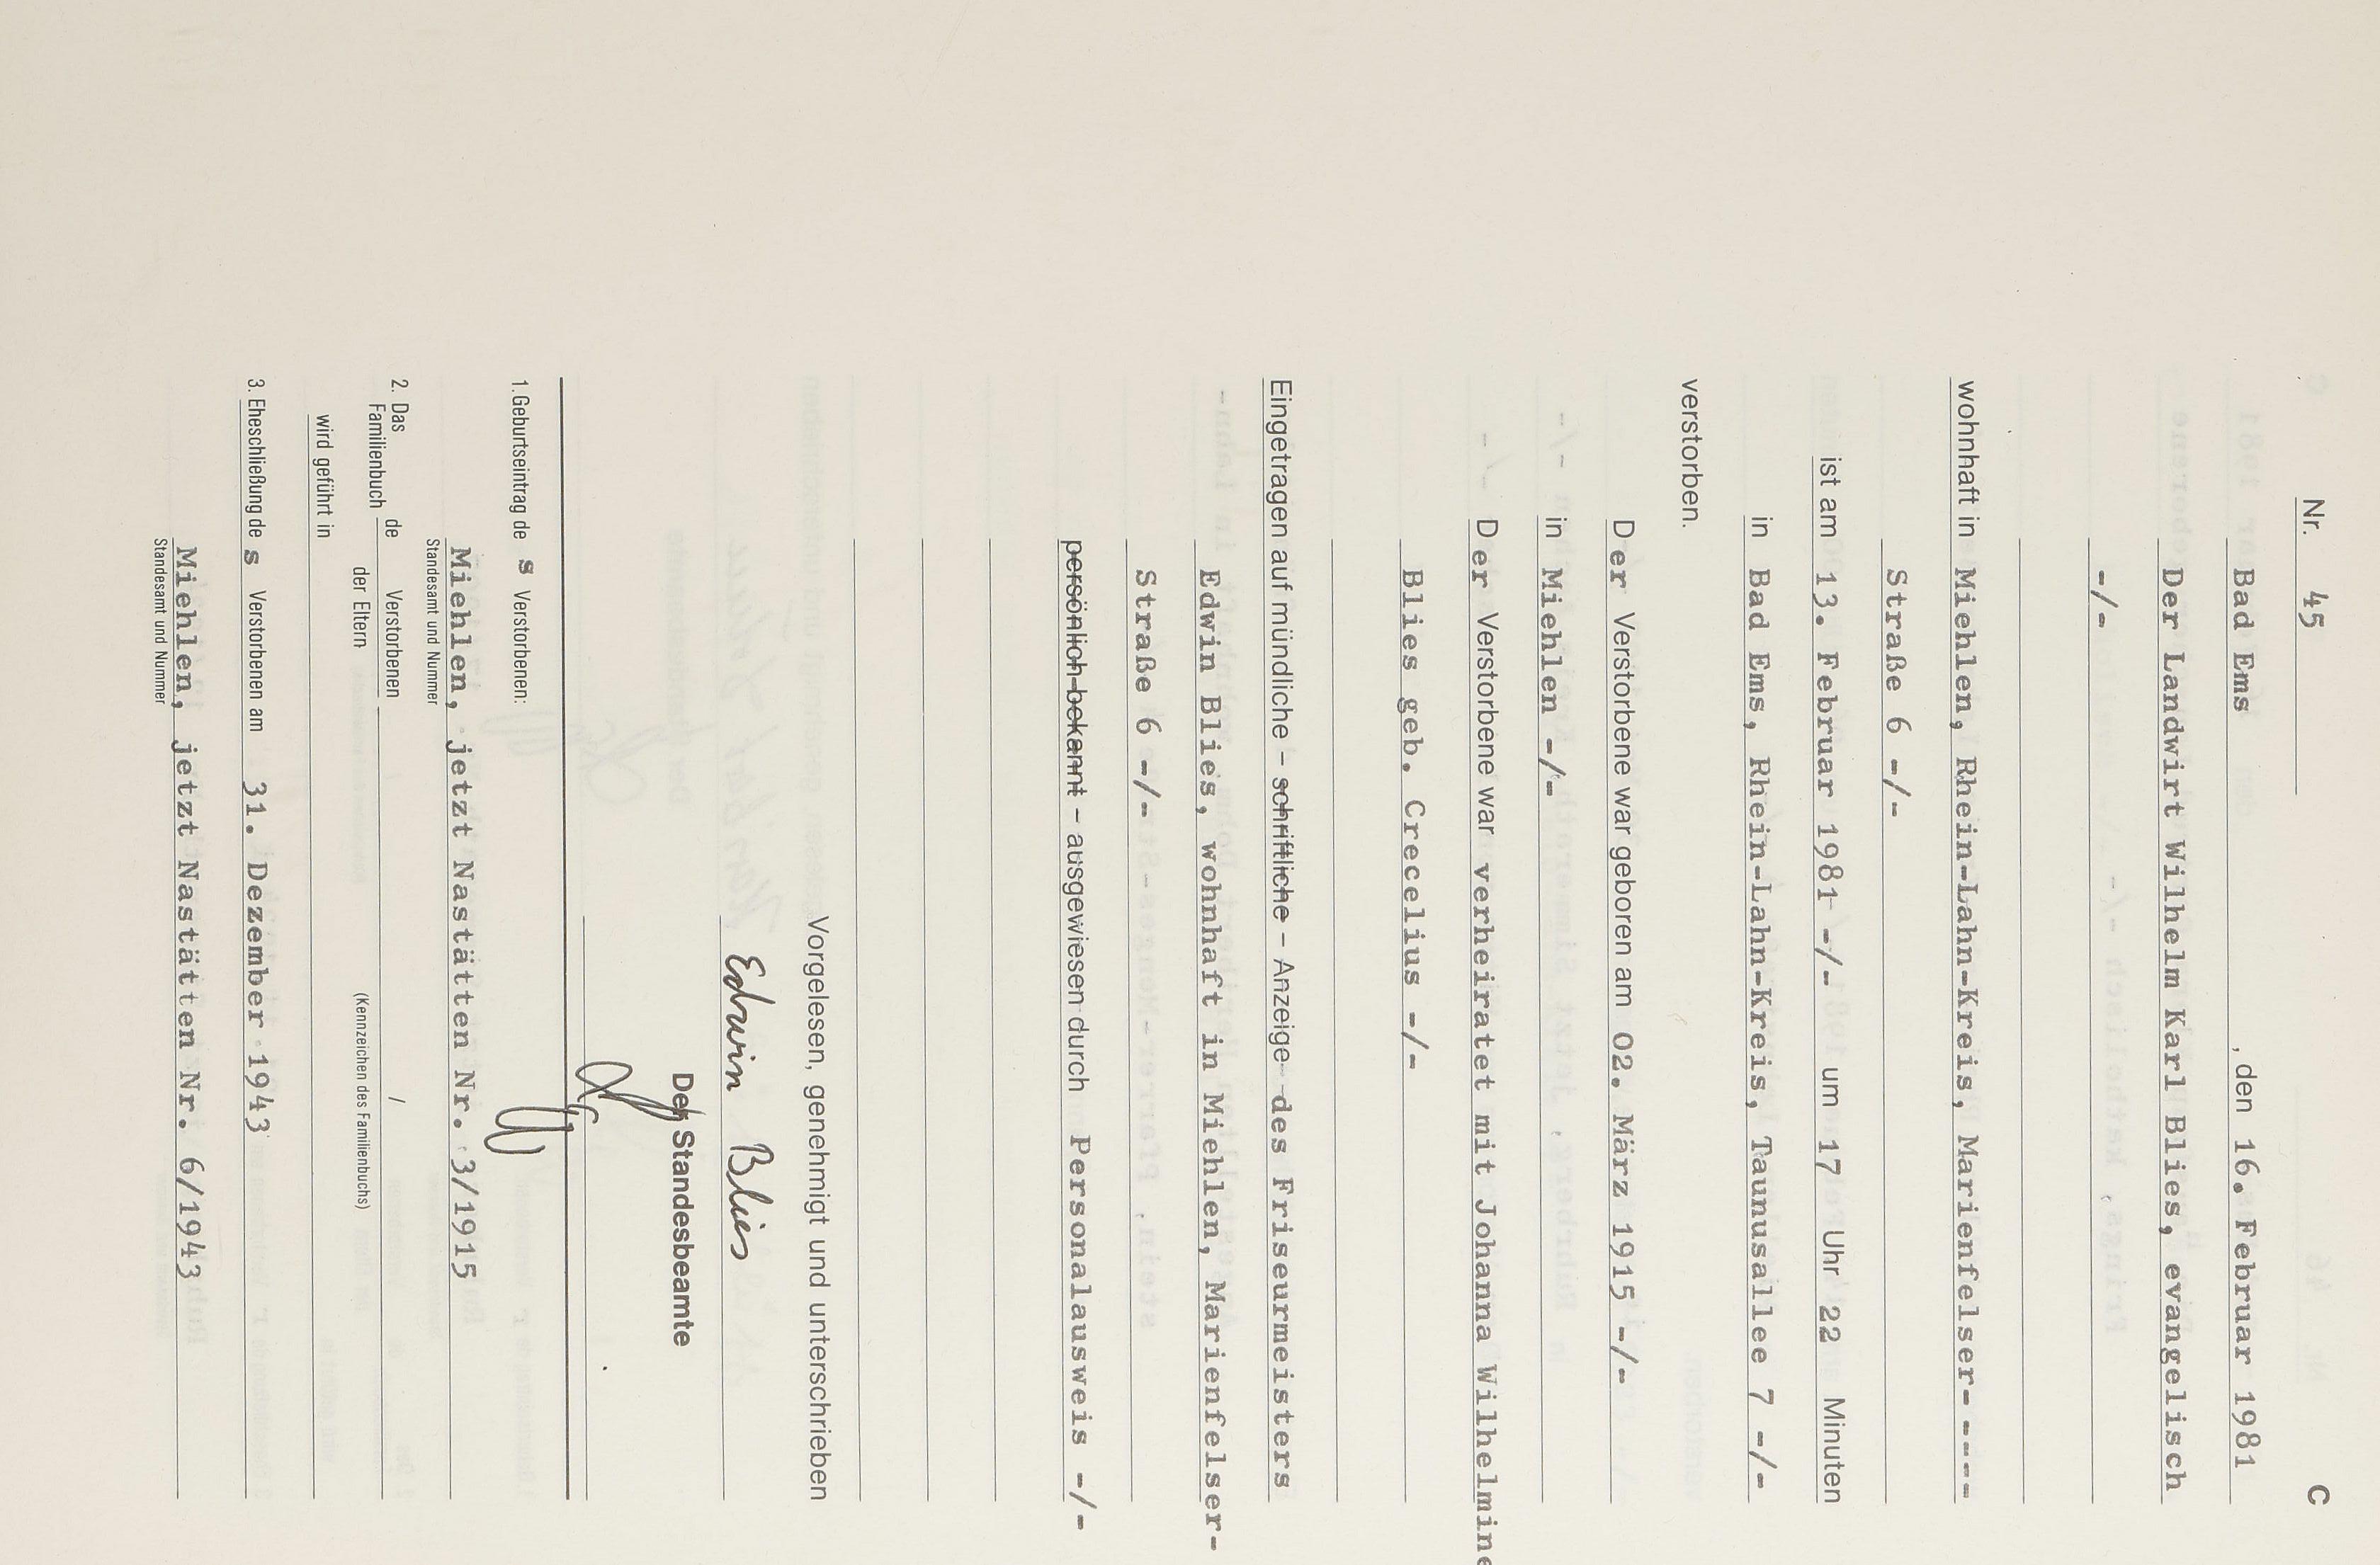 Nr. 45 C
Bad Ems , den 16. Februar 1981
Der Landwirt Wilhelm Karl Blies, evangelisch
-/-
wohnhaft in Miehlen, Rhein-Lahn-Kreis, Marienfelser- ----
Straße 6 -/-
ist am 13. Februar 1981 -/- um 17 Uhr 22 Minuten
in Bad Ems, Rhein-Lahn-Kreis, Taunusallee 7 -/-
verstorben.
Der Verstorbene war geboren am 02. März 1915 -/-
in Miehlen -/-
Der Verstorbene war verheiratet mit Johanna Wilhelmine
Blies geb. Crecelius -/-
Eingetragen auf mündliche – schriftliche – Anzeige des Friseurmeisters
Edwin Blies, wohnhaft in Miehlen, Marienfelser-
Straße 6 -/-
persönlich bekannt – ausgewiesen durch Personalausweis -/-
Vorgelesen, genehmigt und unterschrieben
Edwin Blies
Der Standesbeamte
1. Geburtseintrag des Verstorbenen:
Miehlen, jetzt Nastätten Nr. 3/1915
Standesamt und Nummer
2. Das Familienbuch de Verstorbenen /
der Eltern (Kennzeichen des Familienbuchs)
wird geführt in
3. Eheschließung des Verstorbenen am 31. Dezember 1943
Miehlen, jetzt Nastätten Nr. 6/1943
Standesamt und Nummer